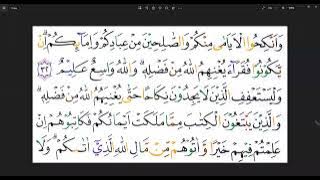 وَأَنكِحُوا الْأَيَامَىٰ مِنكُمْ وَالصَّالِحِينَ مِنْ عِبَادِكُمْ وَإِمَائِكُمْ ۚ إِن
يَكُونُوا فُقَرَاءَ يُغْنِهِمُ اللَّهُ مِن فَضْلِهِ ۗ وَاللَّهُ وَاسِعٌ عَلِيمٌ ٣٢
وَلْيَسْتَعْفِفِ الَّذِينَ لَا يَجِدُونَ نِكَاحًا حَتَّىٰ يُغْنِيَهُمُ اللَّهُ مِن فَضْلِهِ ۗ
وَالَّذِينَ يَبْتَغُونَ الْكِتَابَ مِمَّا مَلَكَتْ أَيْمَانُكُمْ فَكَاتِبُوهُمْ إِنْ
عَلِمْتُمْ فِيهِمْ خَيْرًا ۖ وَآتُوهُم مِّن مَّالِ اللَّهِ الَّذِي آتَاكُمْ ۚ وَلَا